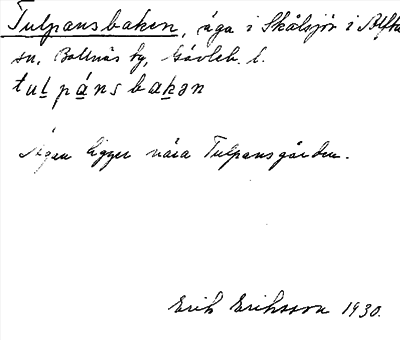 Tulpansbaken, äga i Skålsjön i Alfta
sn, Bollnäs tg, Gävleb. l.
tulpánsbakən
Ägan ligger nära Tulpansgården.
Erik Eriksson 1930.